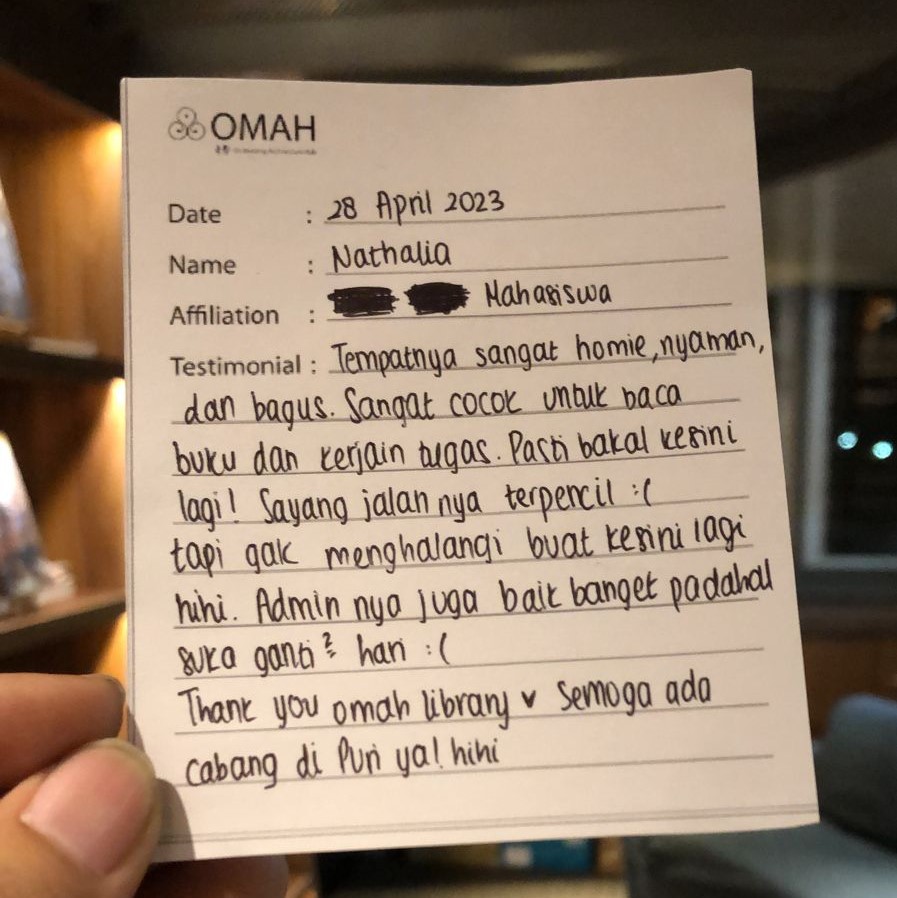 OMAH
Date : 28 April 2023
Name : Nathalia
Affiliation : Mahasiswa
Testimonial : Tempatnya sangat homie, nyaman,
dan bagus. Sangat cocok untuk baca
buku dan kerjain tugas. Pasti bakal kesini
lagi! Sayang jalan nya terpencil :(
tapi gak menghalangi buat kesini lagi
hihi. Admin nya juga baik banget padahal
suka ganti² hari :(
Thank you omah library ♥ Semoga ada
cabang di Puri ya! hihi